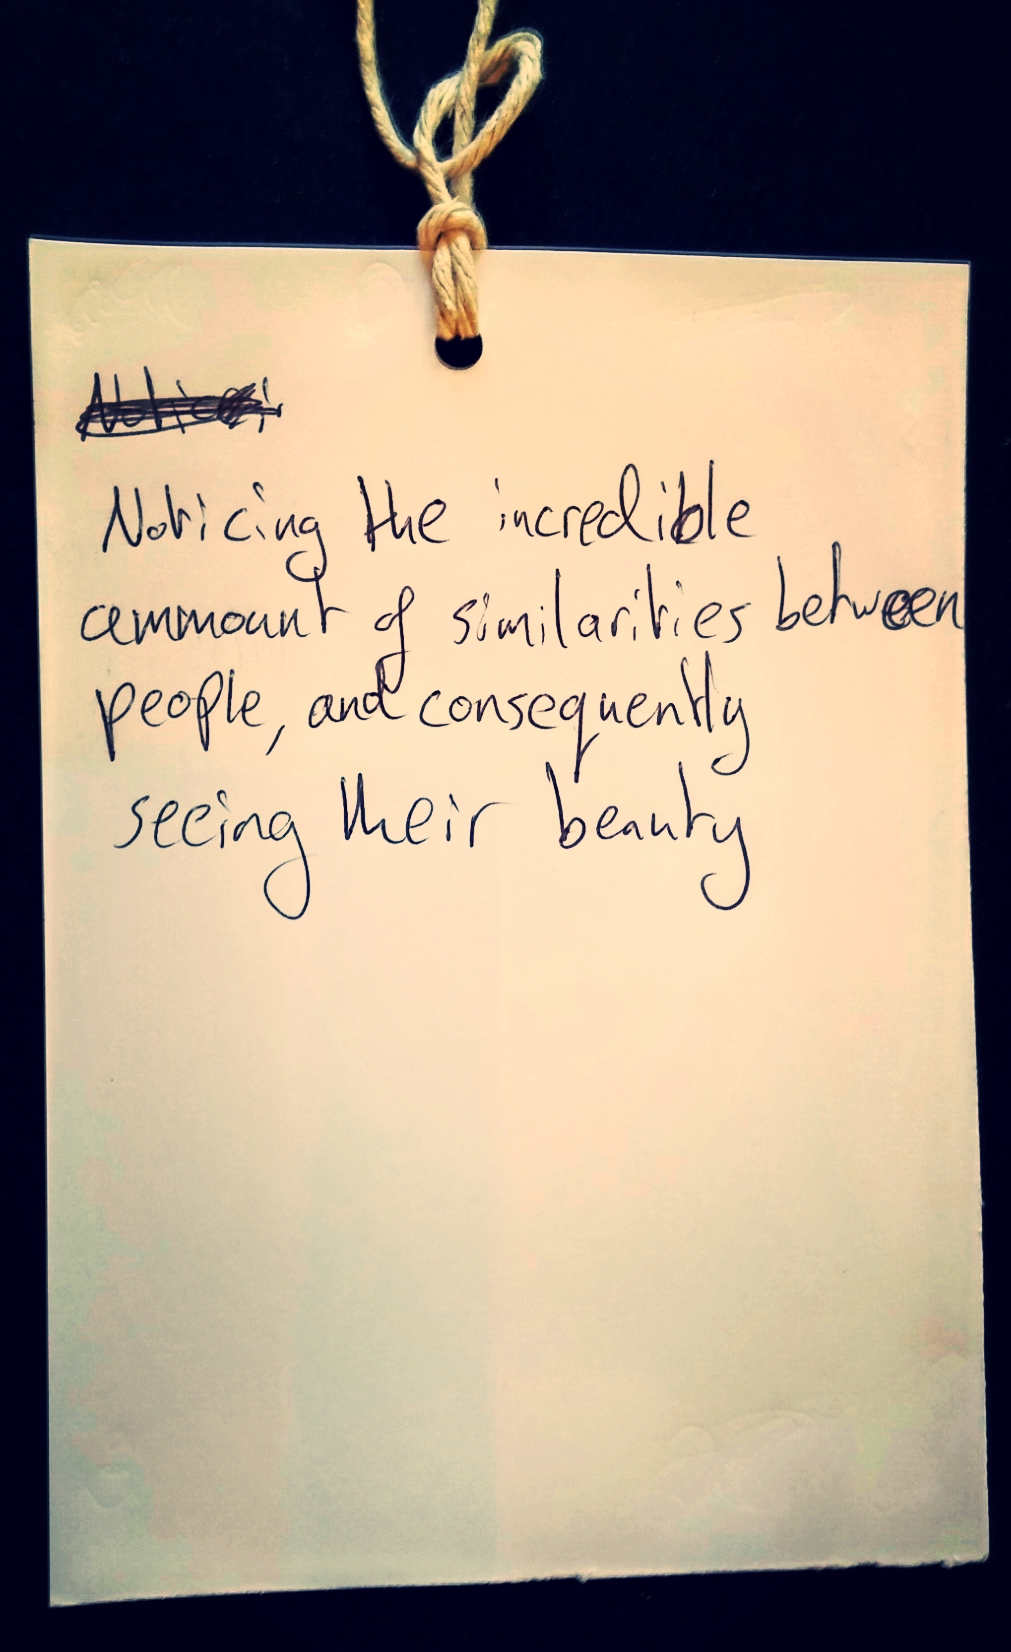 Noticing the incredible
ammount of similarities between
people, and consequently
seeing their beauty